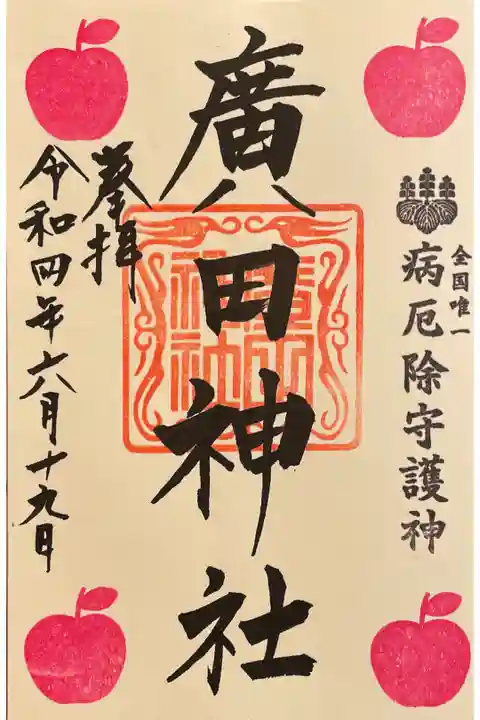 全国唯一
病厄除守護神
廣田神社
奉拝
令和四年六月十九日